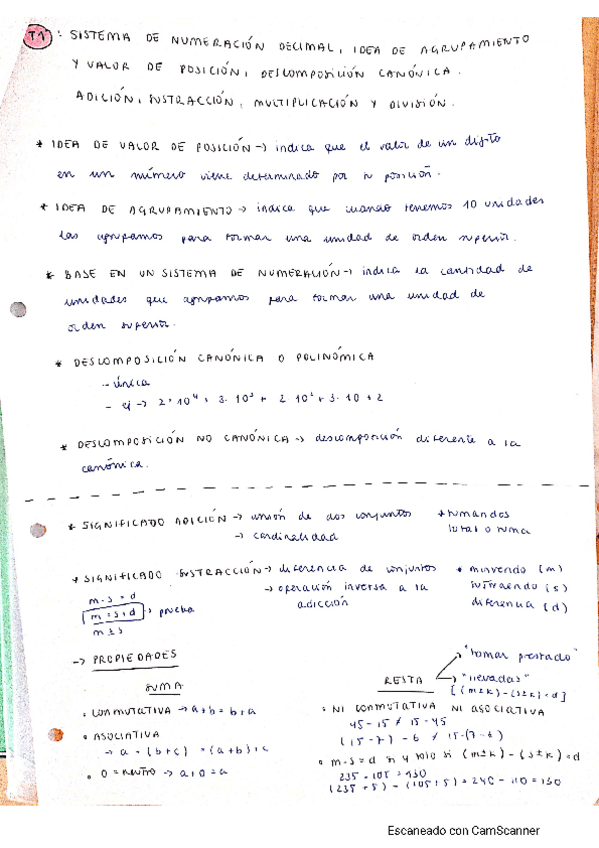 T1: SISTEMA DE NUMERACIÓN DECIMAL, IDEA DE AGRUPAMIENTO
Y VALOR DE POSICIÓN, DESCOMPOSICIÓN CANÓNICA.
ADICIÓN, SUSTRACCIÓN, MULTIPLICACIÓN Y DIVISIÓN.
* IDEA DE VALOR DE POSICIÓN → indica que el valor de un dígito
en un número viene determinado por su posición.
* IDEA DE AGRUPAMIENTO → indica que cuando tenemos 10 unidades
las agrupamos para formar una unidad de orden superior.
* BASE EN UN SISTEMA DE NUMERACIÓN → indica la cantidad de
unidades que agrupamos para formar una unidad de
orden superior.
* DESCOMPOSICIÓN CANÓNICA O POLINÓMICA
- única
- ej → 2·10⁴ + 3·10³ + 2·10² + 3·10 + 2
* DESCOMPOSICIÓN NO CANÓNICA → descomposición diferente a la
canónica.
* SIGNIFICADO ADICIÓN → unión de dos conjuntos * sumandos
→ cardinalidad total o suma
* SIGNIFICADO SUSTRACCIÓN → diferencia de conjuntos * minuendo (m)
→ operación inversa a la sustraendo (s)
adicción diferencia (d)
m - s = d
m = s + d prueba
m ≥ s
→ PROPIEDADES
SUMA
• CONMUTATIVA → a + b = b + a
• ASOCIATIVA
→ a + (b + c) = (a + b) + c
• 0 = neutro → a + 0 = a
RESTA
"tomar prestado"
"llevadas"
[(m±k) - (s±k) = d]
• NI CONMUTATIVA NI ASOCIATIVA
45 - 15 ≠ 15 - 45
(15 - 7) - 6 ≠ 15 - (7 - 6)
• m - s = d si y solo si (m±k) - (s±k) = d
235 - 105 = 130
(235 + 5) - (105 + 5) = 240 - 110 = 130
Escaneado con CamScanner